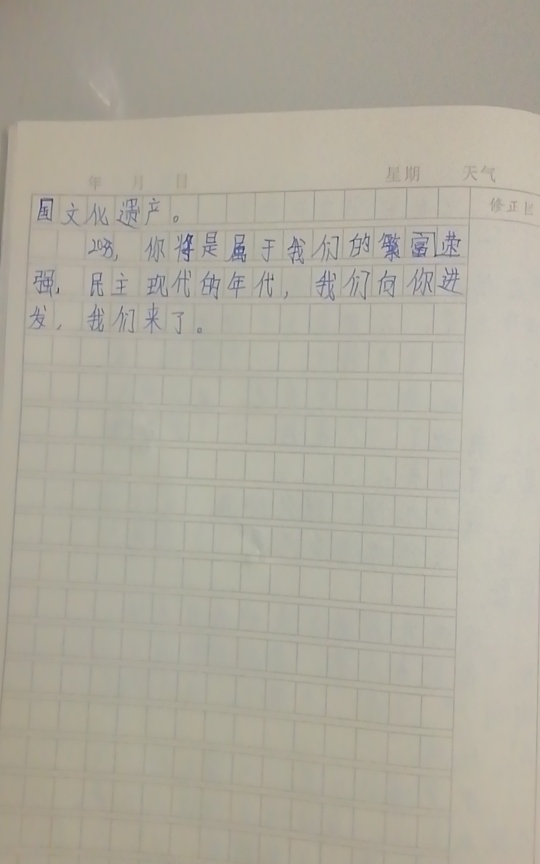 年 月 日 星期 天气
修正
国文化遗产。
2035, 你将是属于我们的繁富荣
强, 民主现代的年代, 我们向你进
发, 我们来了。